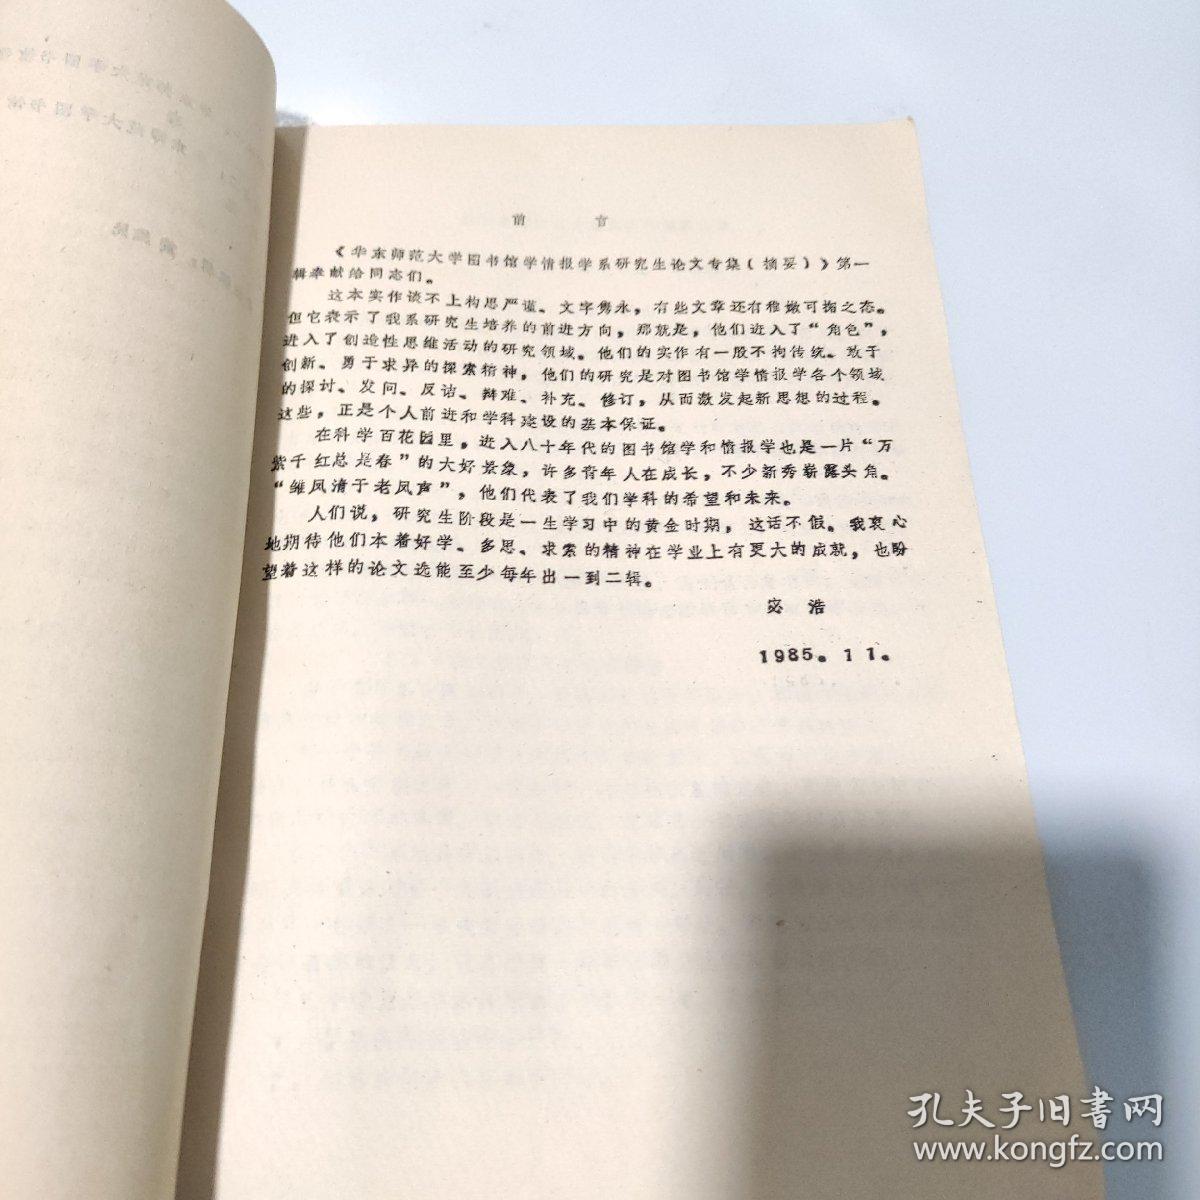 前言
《华东师范大学图书馆学情报学系研究生论文专集(摘要)》第一
辑奉献给同志们。
这本实作谈不上构思严谨、文字隽永,有些文章还有稚嫩可掬之态。
但它表示了我系研究生培养的前进方向,那就是,他们进入了“角色”,
进入了创造性思维活动的研究领域。他们的实作有一股不拘传统、敢于
创新、勇于求异的探索精神,他们的研究是对图书馆学情报学各个领域
的探讨、发问、反诘、辩难、补充、修订,从而激发起新思想的过程。
这些,正是个人前进和学科建设的基本保证。
在科学百花园里,进入八十年代的图书馆学和情报学也是一片“万
紫千红总是春”的大好景象,许多青年人在成长,不少新秀崭露头角。
“雏凤清于老凤声”,他们代表了我们学科的希望和未来。
人们说,研究生阶段是一生学习中的黄金时期,这话不假。我衷心
地期待他们本着好学、多思、求索的精神在学业上有更大的成就,也盼
望着这样的论文选能至少每年出一到二辑。
宓浩
1985。11。
孔夫子旧书网
www.kongfz.com